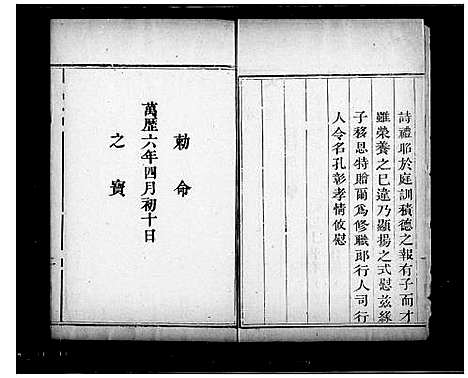 詩禮耶於庭訓積德之報有子而才
雖榮養之巳違乃顯揚之式慰茲緣
子移恩特贈爾爲修職郎行人司行
人令名孔彰孝情攸慰
勅命
萬歷六年四月初十日
之寶